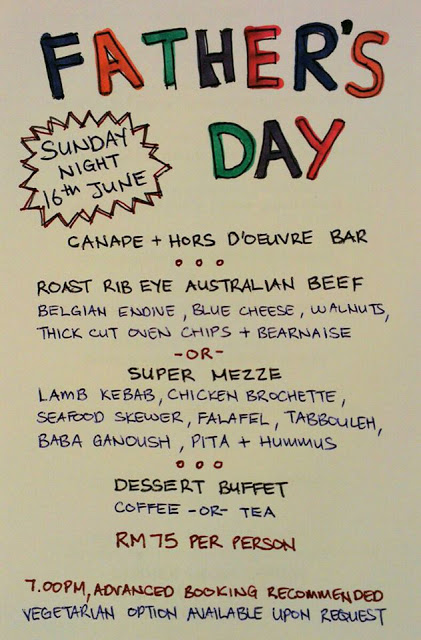 FATHER'S
DAY
SUNDAY
NIGHT
16th JUNE
CANAPE + HORS D'OEUVRE BAR
ROAST RIB EYE AUSTRALIAN BEEF
BELGIAN ENDIVE, BLUE CHEESE, WALNUTS,
THICK CUT OVEN CHIPS + BEARNAISE
-OR-
SUPER MEZZE
LAMB KEBAB, CHICKEN BROCHETTE,
SEAFOOD SKEWER, FALAFEL, TABBOULEH,
BABA GANOUSH, PITA + HUMMUS
DESSERT BUFFET
COFFEE -OR- TEA
RM 75 PER PERSON
7.00PM, ADVANCED BOOKING RECOMMENDED
VEGETARIAN OPTION AVAILABLE UPON REQUEST